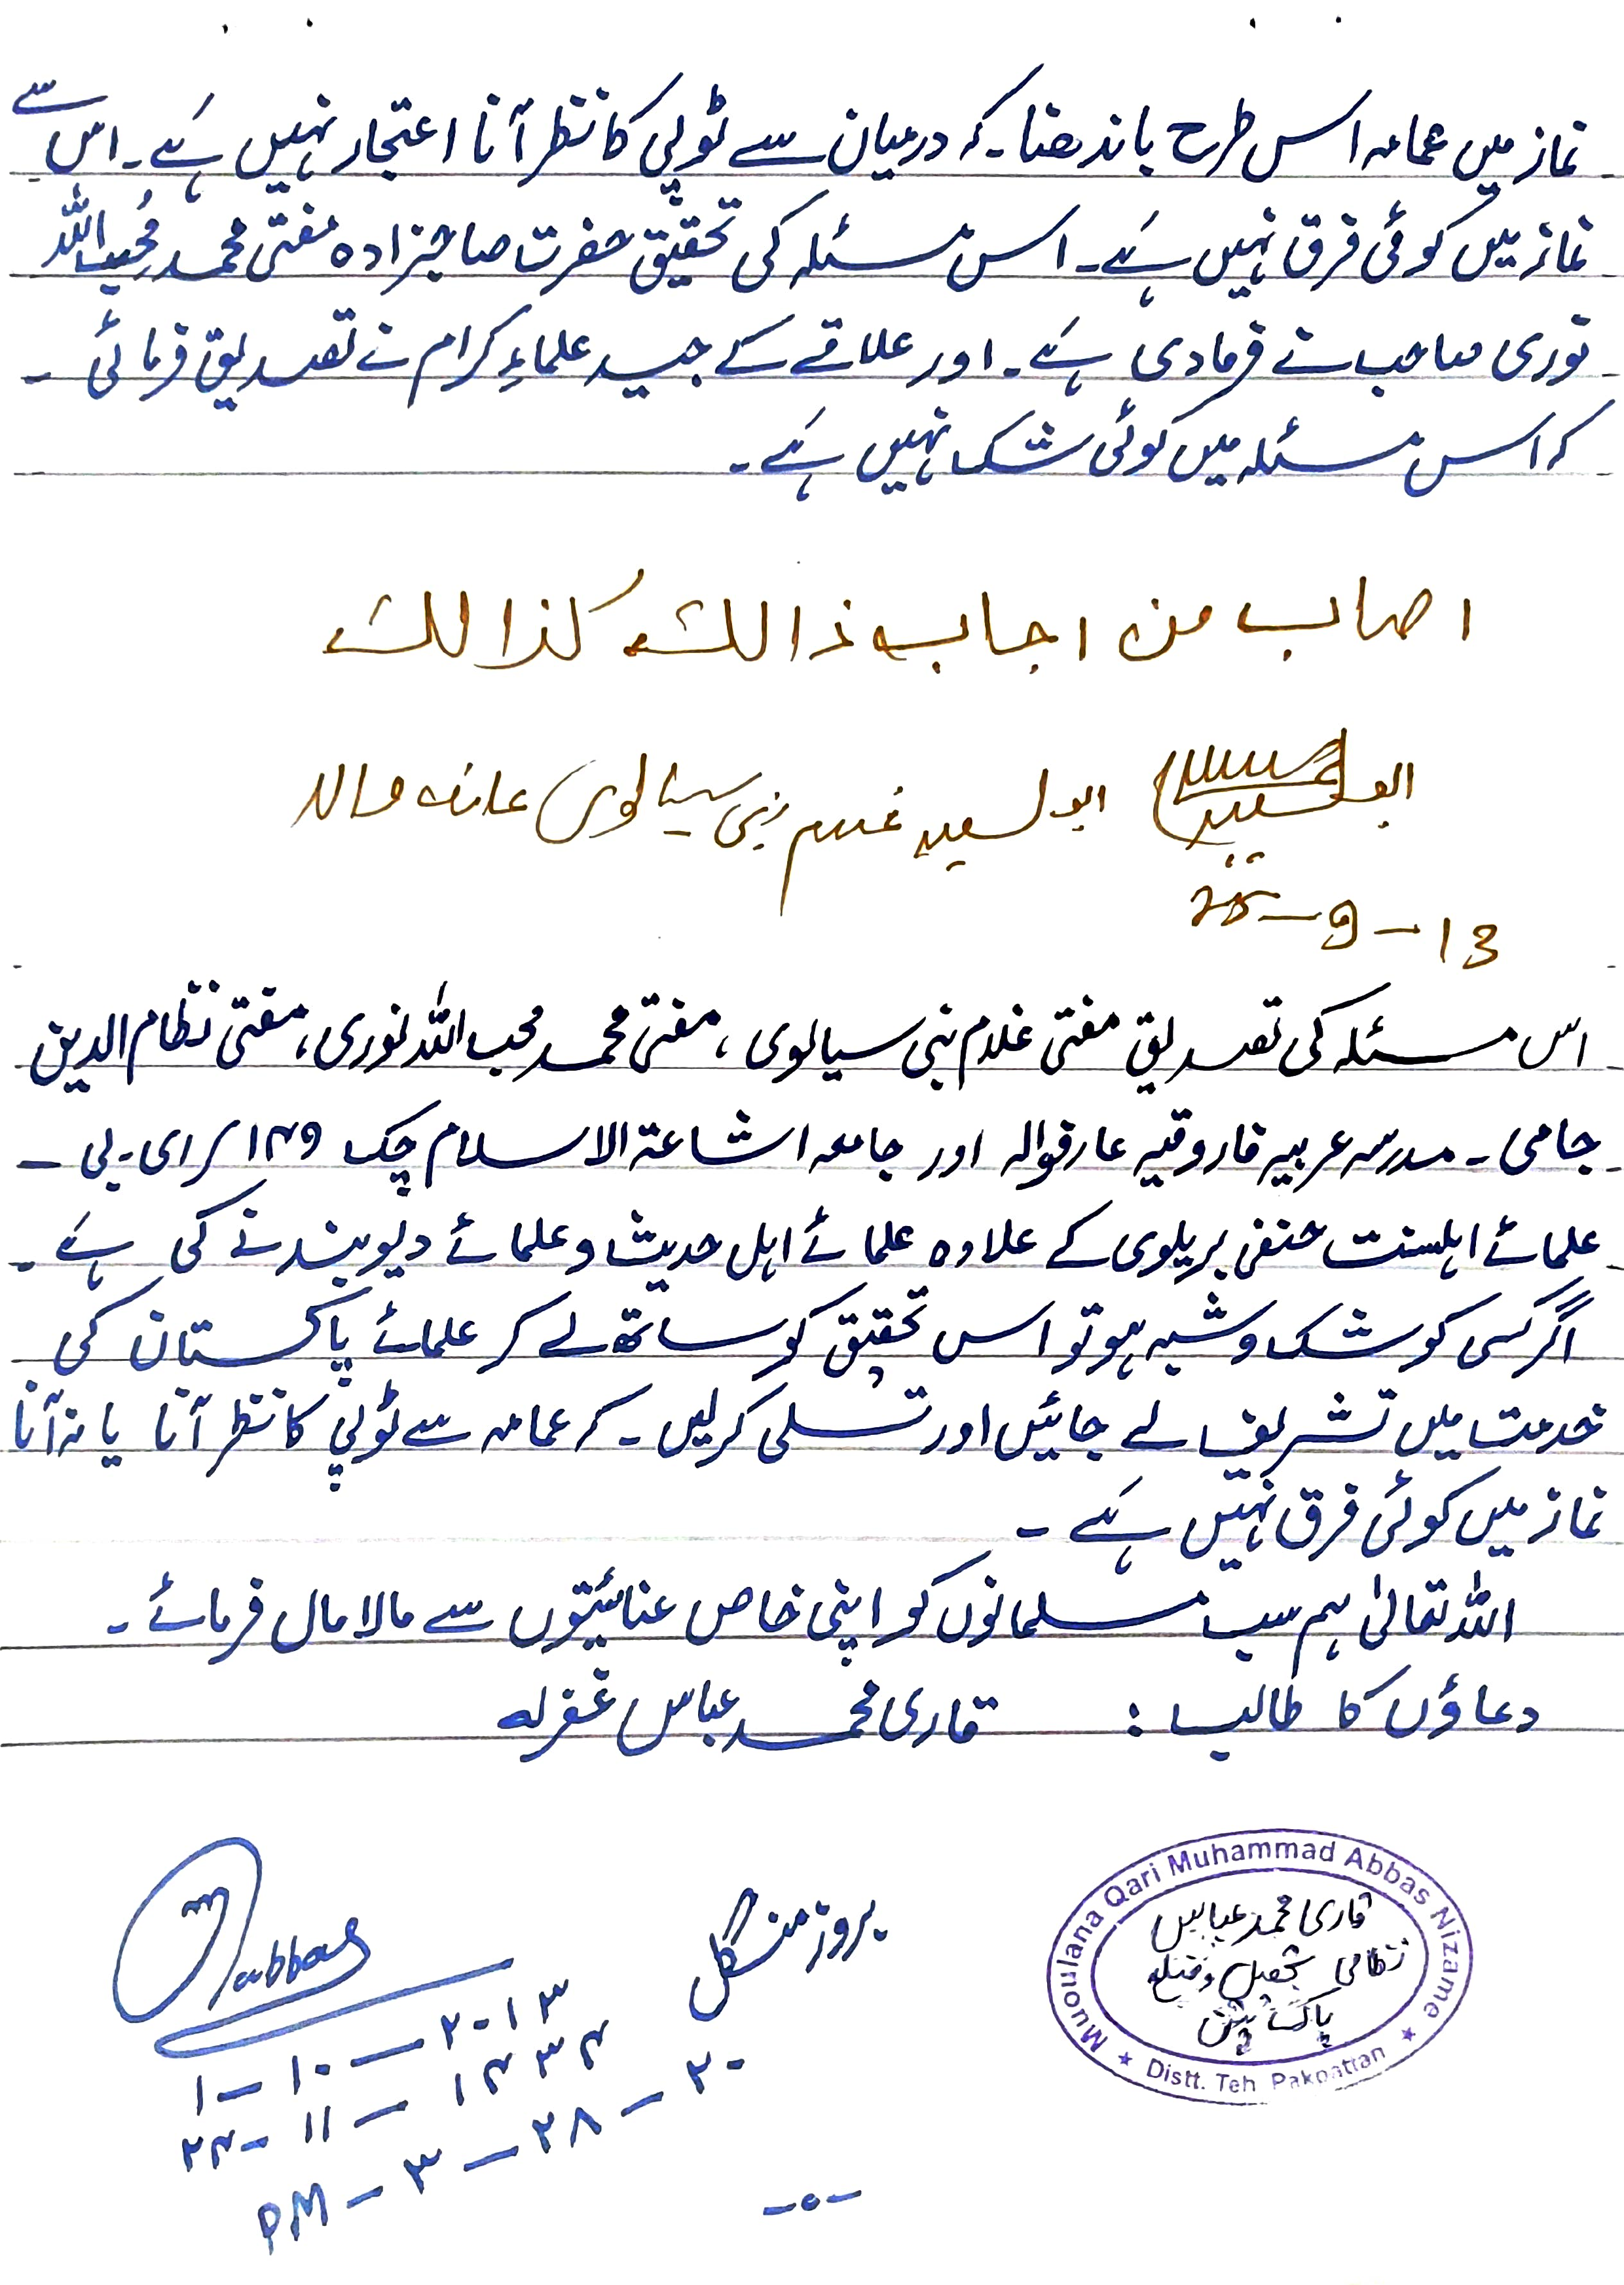 نماز میں عمامہ اس طرح باندھنا۔ کہ درمیان سے ٹوپی کا نظر آنا اعتجار نہیں ہے۔ اس سے
نماز میں کوئی فرق نہیں ہے۔ اس مسئلہ کی تحقیق حضرت صاحبزادہ مفتی محمد مُحِب اللہ
نوری صاحب نے فرما دی ہے۔ اور علاقے کے جید علماءِ کرام نے تصدیق فرمائی ۔
کہ اس مسئلہ میں کوئی شک نہیں ہے ۔
اصاب من اجاب ذالک کذالک
ابو السعید ابو السعید غلام نبی سیالوی
13 - 9 -
اس مسئلہ کی تصدیق مفتی غلام نبی سیالوی ، مفتی محمد محب اللہ نوری ، مفتی نظام الدین
جامی ۔ مدرسہ عربیہ فاروقیہ عارفوالہ اور جامعہ اشاعۃ الاسلام چک ۱۴۹/ای۔بی ۔
علمائے اہلسنت حنفی بریلوی کے علاوہ علمائے اہل حدیث و علمائے دیوبند نے کی ہے ۔
اگر کسی کو شک و شبہ ہو تو اس تحقیق کو ساتھ لے کر علمائے پاکستان کی
خدمت میں تشریف لے جائیں اور تسلی کر لیں ۔ کہ عمامہ سے ٹوپی کا نظر آنا یا نہ آنا
نماز میں کوئی فرق نہیں ہے ۔
اللہ تعالیٰ ہم سب مسلمانوں کو اپنی خاص عنائیتوں سے مالا مال فرمائے ۔
دعاؤں کا طالب : قاری محمد عباس غفرلہ
Muoulana Qari Muhammad Abbas Nizame
قاری محمد عباس
نظامی تحصیل و ضلع
پاکپتن
Distt. Teh Pakpattan
بروز منگل
abbas
۱ - ۱۰ - ۲۰۱۳
۲۴ - ۱۱ - ۱۴۳۴
PM - ۳ - ۲۸ - ۲۰